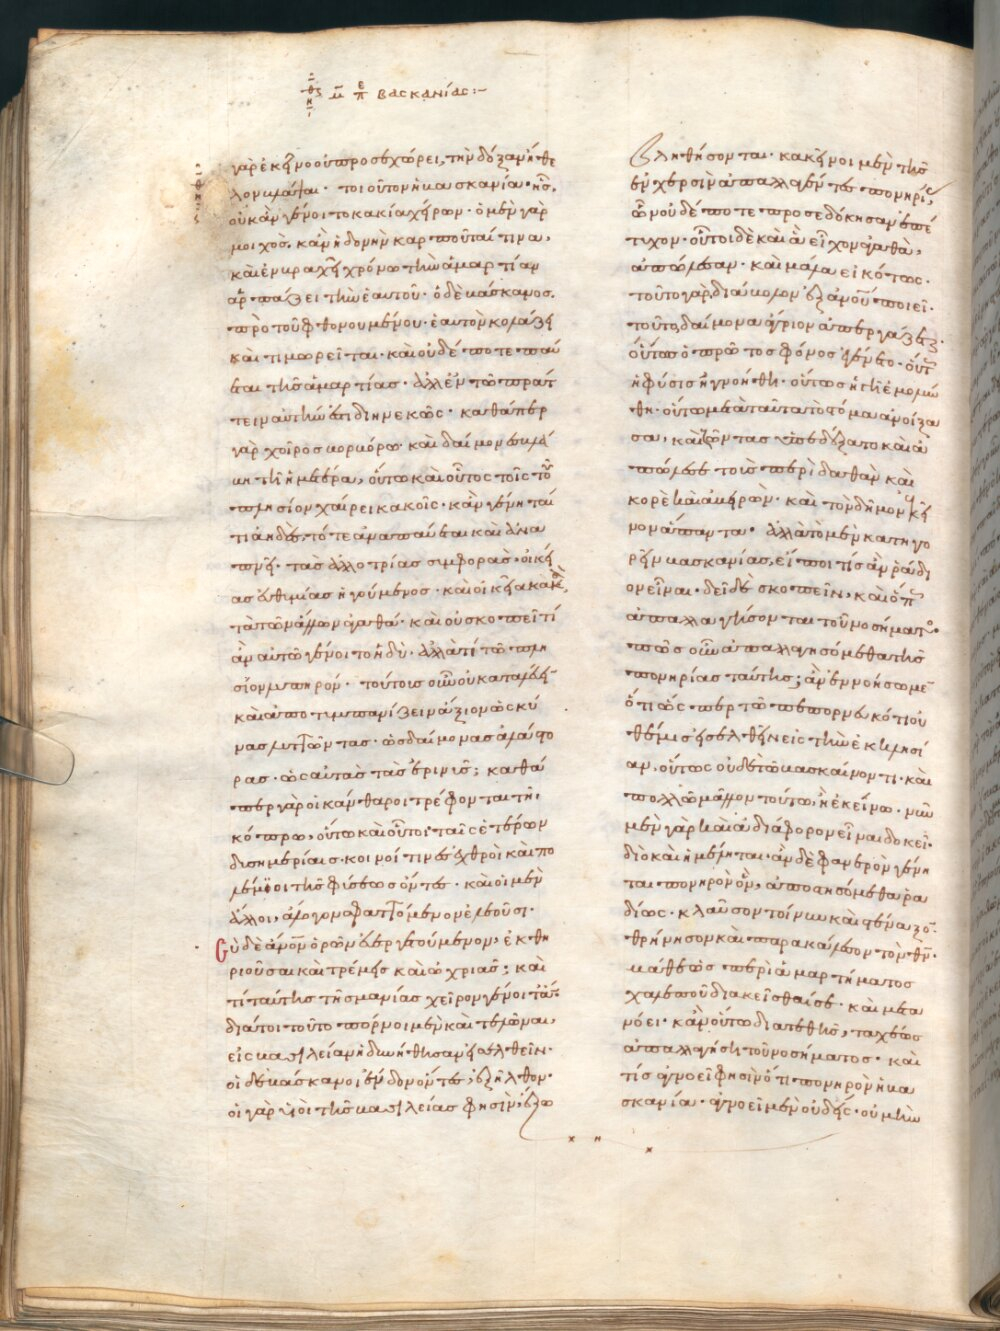 ΟΘ ΗΘ ΠΕ ΒΑΣΚΑΝΙΑΣ:-
γὰρ ἐκεῖνο οὐ προσεχώρει, τὴν δόξαν ἤθε
λον βλάψαι· τοιοῦτον ἡ βασκανία· ἧς
οὐκ ἂν γένοιτο κακία χείρων· ὁ μὲν γὰρ
μοιχὸς, κἂν ἡδονὴν καρποῦταί τινα,
καὶ ἐν βραχεῖ χρόνω τὴν ἁμαρτίαν
ἀπαρτίζει τὴν ἑαυτοῦ· ὁ δὲ βάσκανος,
πρὸ τοῦ φθονουμένου· ἑαυτὸν κολάζει
καὶ τιμωρεῖται· καὶ οὐδέποτε παύ
εται τῆς ἁμαρτίας· ἀλλ' ἐν τῶ πράτ
τειν αὐτὴν ἐστι διηνεκῶς· καθάπερ
γὰρ χοῖρος βορβόρω· καὶ δαίμονες βλά
βη τῆ ἡμετέρα, οὕτω καὶ οὗτος τοῖς τοῦ
πλησίον χαίρει κακοῖς· κἂν γένηταί
τι ἀηδὲς, τότε ἀναπαύεται καὶ ἀνα
πνεῖ· τὰς ἀλλοτρίας συμφορὰς· οἰκεί
ας εὐθυμίας ἡγούμενος· καὶ οἰκεῖα κακὰ,
τὰ τῶν ἄλλων ἀγαθά· καὶ οὐ σκοπεῖ τί
ἂν αὐτῶ γένοιτο ἡδὺ· ἀλλὰ τί τῶ πλη
σίον λυπηρόν· τούτους οὖν οὐ καταλεύειν
καὶ ἀποτυμπανίζειν ἄξιον ὡς κύ
νας λυττῶντας· ὡς δαίμονας ἀλάστο
ρας· ὡς αὐτὰς τὰς ἐρινῦς; καθά
περ γὰρ οἱ κάνθαροι τρέφονται τῆ
κόπρω, οὕτω καὶ οὗτοι ταῖς ἑτέρων
δυσημερίαις· κοινοί τινες ἐχθροὶ καὶ πο
λέμιοι τῆς φύσεως ὄντες· καὶ οἱ μὲν
ἄλλοι, ἄλογον σφαττόμενον ἐλεοῦσι·
σὺ δὲ ἄνον ὁρῶν εὐεργετούμενον, ἐκθη
ριοῦσαι καὶ τρέμεις καὶ ὠχριᾶς; καὶ
τί ταύτης τῆς μανίας χεῖρον γένοιτ' ἄν·
διά τοι τοῦτο πόρνοι μὲν καὶ τελῶναι,
εἰς βασιλείαν ἠδυνήθησαν εἰσελθεῖν·
οἱ δὲ βάσκανοι ἔνδον ὄντες, ἐξῆλθον·
οἱ γὰρ υἱοὶ τῆς βασιλείας φησὶν, ἔξω
βληθήσονται· κἀκεῖνοι μὲν τῆς
ἐν χερσὶν ἀπαλλαγέντες πονηρίας,
ὧν οὐδέποτε προσεδόκησαν ἐπέ
τυχον· οὗτοι δὲ καὶ ἃ εἶχον ἀγαθὰ,
ἀπώλεσαν· καὶ μάλα εἰκότως·
τοῦτο γὰρ διάβολον ἐξ ἀνοῦ ποιεῖ·
τοῦτο δαίμονα ἄγριον ἀπεργάζεται·
οὕτως ὁ πρῶτος φόνος ἐγένετο· οὕτως
ἡ φύσις ἠγνοήθη· οὕτως ἡ γῆ ἐμολύν
θη· οὕτω μετὰ ταῦτα τὸ στόμα ἀνοίξα
σα, καὶ ζῶντας ὑπεδέξατο καὶ ἀ
πώλεσε τοὺς περὶ δαθὰν καὶ
κορὲ καὶ ἀβειρὼν· καὶ τὸν δῆμον ἐκεῖ
νον ἅπαντα· ἀλλὰ τὸ μὲν κατηγο
ρεῖν βασκανίας, εἴποι τίς ἂν ῥάδι
ον εἶναι· δεῖ δὲ σκοπεῖν, καὶ ὅπως
ἀπαλλαγήσονται τοῦ νοσήματος·
πῶς οὖν ἀπαλλαγησόμεθα τῆς
πονηρίας ταύτης; ἂν ἐννοήσωμεν
ὅτι ὥσπερ τῶ πεπορνευκότι οὐ
θέμις εἰσελθεῖν εἰς τὴν ἐκκλησί
αν, οὕτως οὐδὲ τῶ βασκαίνοντι· καὶ
πολλῶ μᾶλλον τούτω, ἢ ἐκείνω· νῦν
μὲν γὰρ καὶ ἀδιάφορον εἶναι δοκεῖ·
διὸ καὶ ἠμέληται· ἂν δὲ φανερὸν γένη
ται πονηρὸν ὂν, ἀποστησόμεθα ῥα
δίως· κλαῦσον τοίνυν καὶ στέναξον·
θρήνησον καὶ παρακάλεσον τὸν θν·
μάθε ὡς περὶ ἁμαρτήματος
χαλεποῦ διακεῖσθαί σε· καὶ μετα
νόει· κἂν οὕτω διατεθῆς, ταχέως
ἀπαλλαγήση τοῦ νοσήματος· καὶ
τίς ἀγνοεῖ φησὶν ὅτι πονηρὸν ἡ βα
σκανία· ἀγνοεῖ μὲν οὐδεὶς· οὐ μὴν